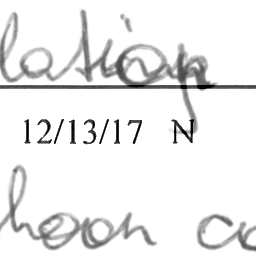 lation
12/13/17 N
hoon co